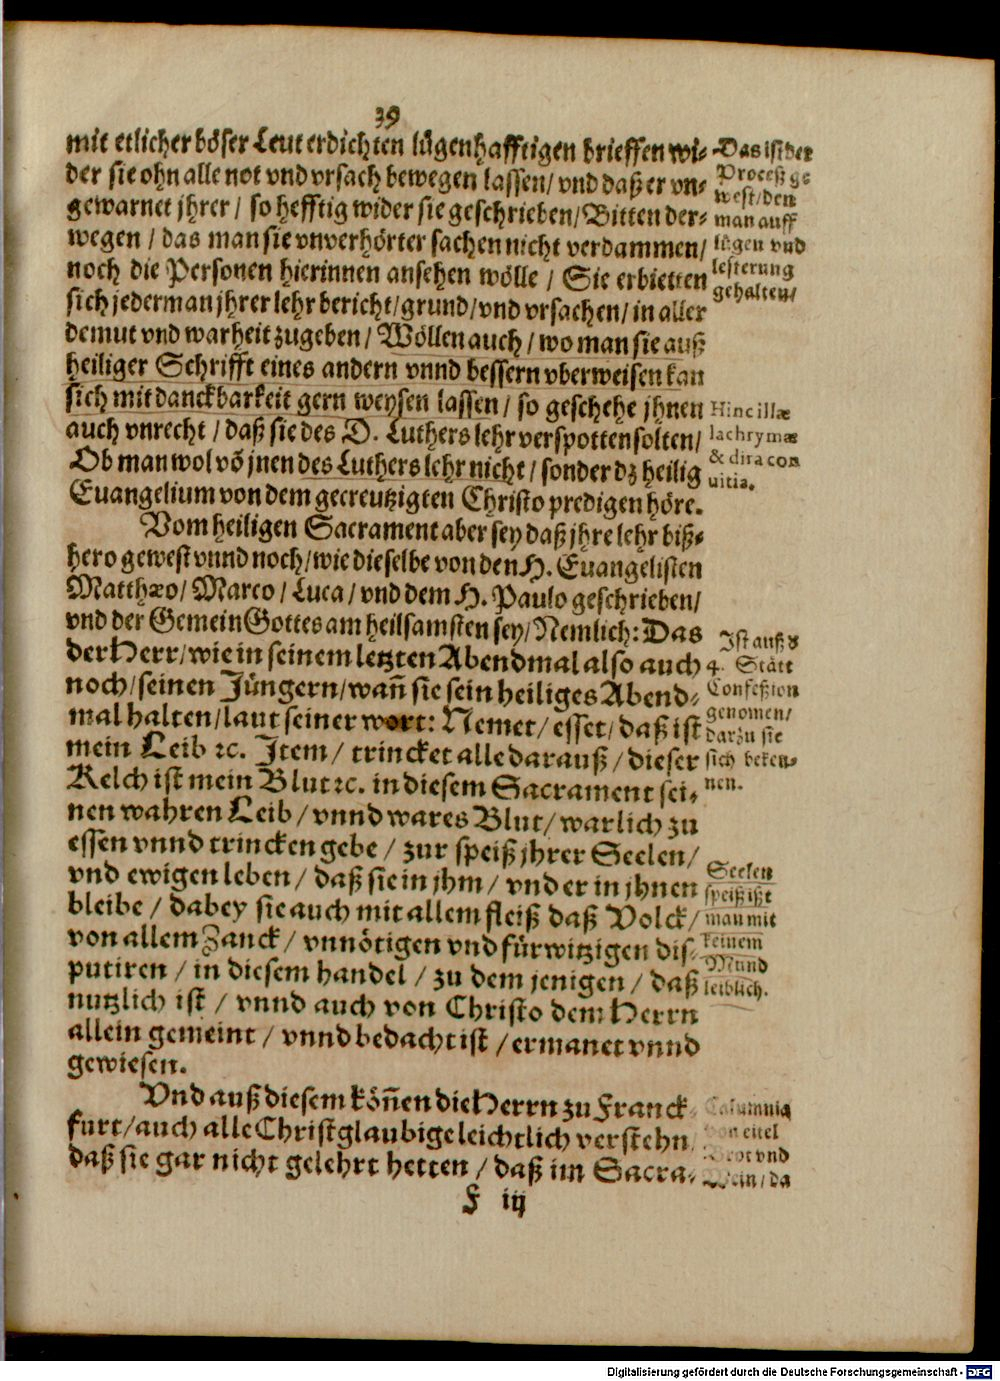 39
mit etlicher böser Leut erdichten lügenhafftigen brieffen wi-
der sie ohn alle not vnd vrsach bewegen lassen/ vnd daß er vn-
gewarnet jhrer/ so hefftig wider sie geschrieben/ Bitten der-
wegen/ das man sie vnverhörter sachen nicht verdammen/
noch die Personen hierinnen ansehen wölle/ Sie erbietten
sich jederman jhrer lehr bericht/ grund/ vnd vrsachen/ in aller
demut vnd warheit zugeben/ Wöllen auch/ wo man sie auß
heiliger Schrifft eines andern vnnd bessern vberweisen kan
sich mit danckbarkeit gern weysen lassen/ so geschehe jhnen
auch vnrecht/ daß sie des D. Luthers lehr verspotten solten/
Ob man wol võ jnen des Luthers lehr nicht/ sonder dz heilig
Euangelium von dem gecreutzigten Christo predigen höre.
Vom heiligen Sacrament aber sey daß jhre lehr biß-
hero gewest vnnd noch/ wie dieselbe von den H. Euangelisten
Matthæo/ Marco/ Luca/ vnd dem H. Paulo geschrieben/
vnd der Gemein Gottes am heilsamsten sey/ Nemlich: Das
der Herr/ wie in seinem letzten Abendmal also auch
noch/ seinen Jüngern/ wañ sie sein heiliges Abend-
mal halten/ laut seiner wort: Nemet/ esset/ daß ist
mein Leib ꝛc. Item/ trincket alle darauß/ dieser
Kelch ist mein Blut ꝛc. in diesem Sacrament sei-
nen wahren Leib/ vnnd wares Blut/ warlich zu
essen vnnd trincken gebe/ zur speiß jhrer Seelen/
vnd ewigen leben/ daß sie in jhm/ vnd er in jhnen
bleibe/ dabey sie auch mit allem fleiß daß Volck/
von allem Zanck/ vnnötigen vnd fürwitzigen dis-
putiren/ in diesem handel/ zu dem jenigen/ daß
nutzlich ist/ vnnd auch von Christo dem Herrn
allein gemeint/ vnnd bedacht ist/ ermanet vnnd
gewiesen.
Vnd auß diesem köñen die Herrn zu Franck-
furt/ auch alle Christglaubige leichtlich verstehn
daß sie gar nicht gelehrt hetten/ daß im Sacra-
F iij
Das ist der
Proceß ge-
west/ den
man auff
lügen vnd
lesterung
gehalten/
Hinc illæ
lachrymæ
& dira con
uitia.
Ist auß d
4. Stätt
Confeßion
genomen/
darzu sie
sich beken-
nen.
Seelen
speiß ißt
man mit
keinem
Mund
leiblich.
eitel
vnd
Wein/ da
Digitalisierung gefördert durch die Deutsche Forschungsgemeinschaft - DFG